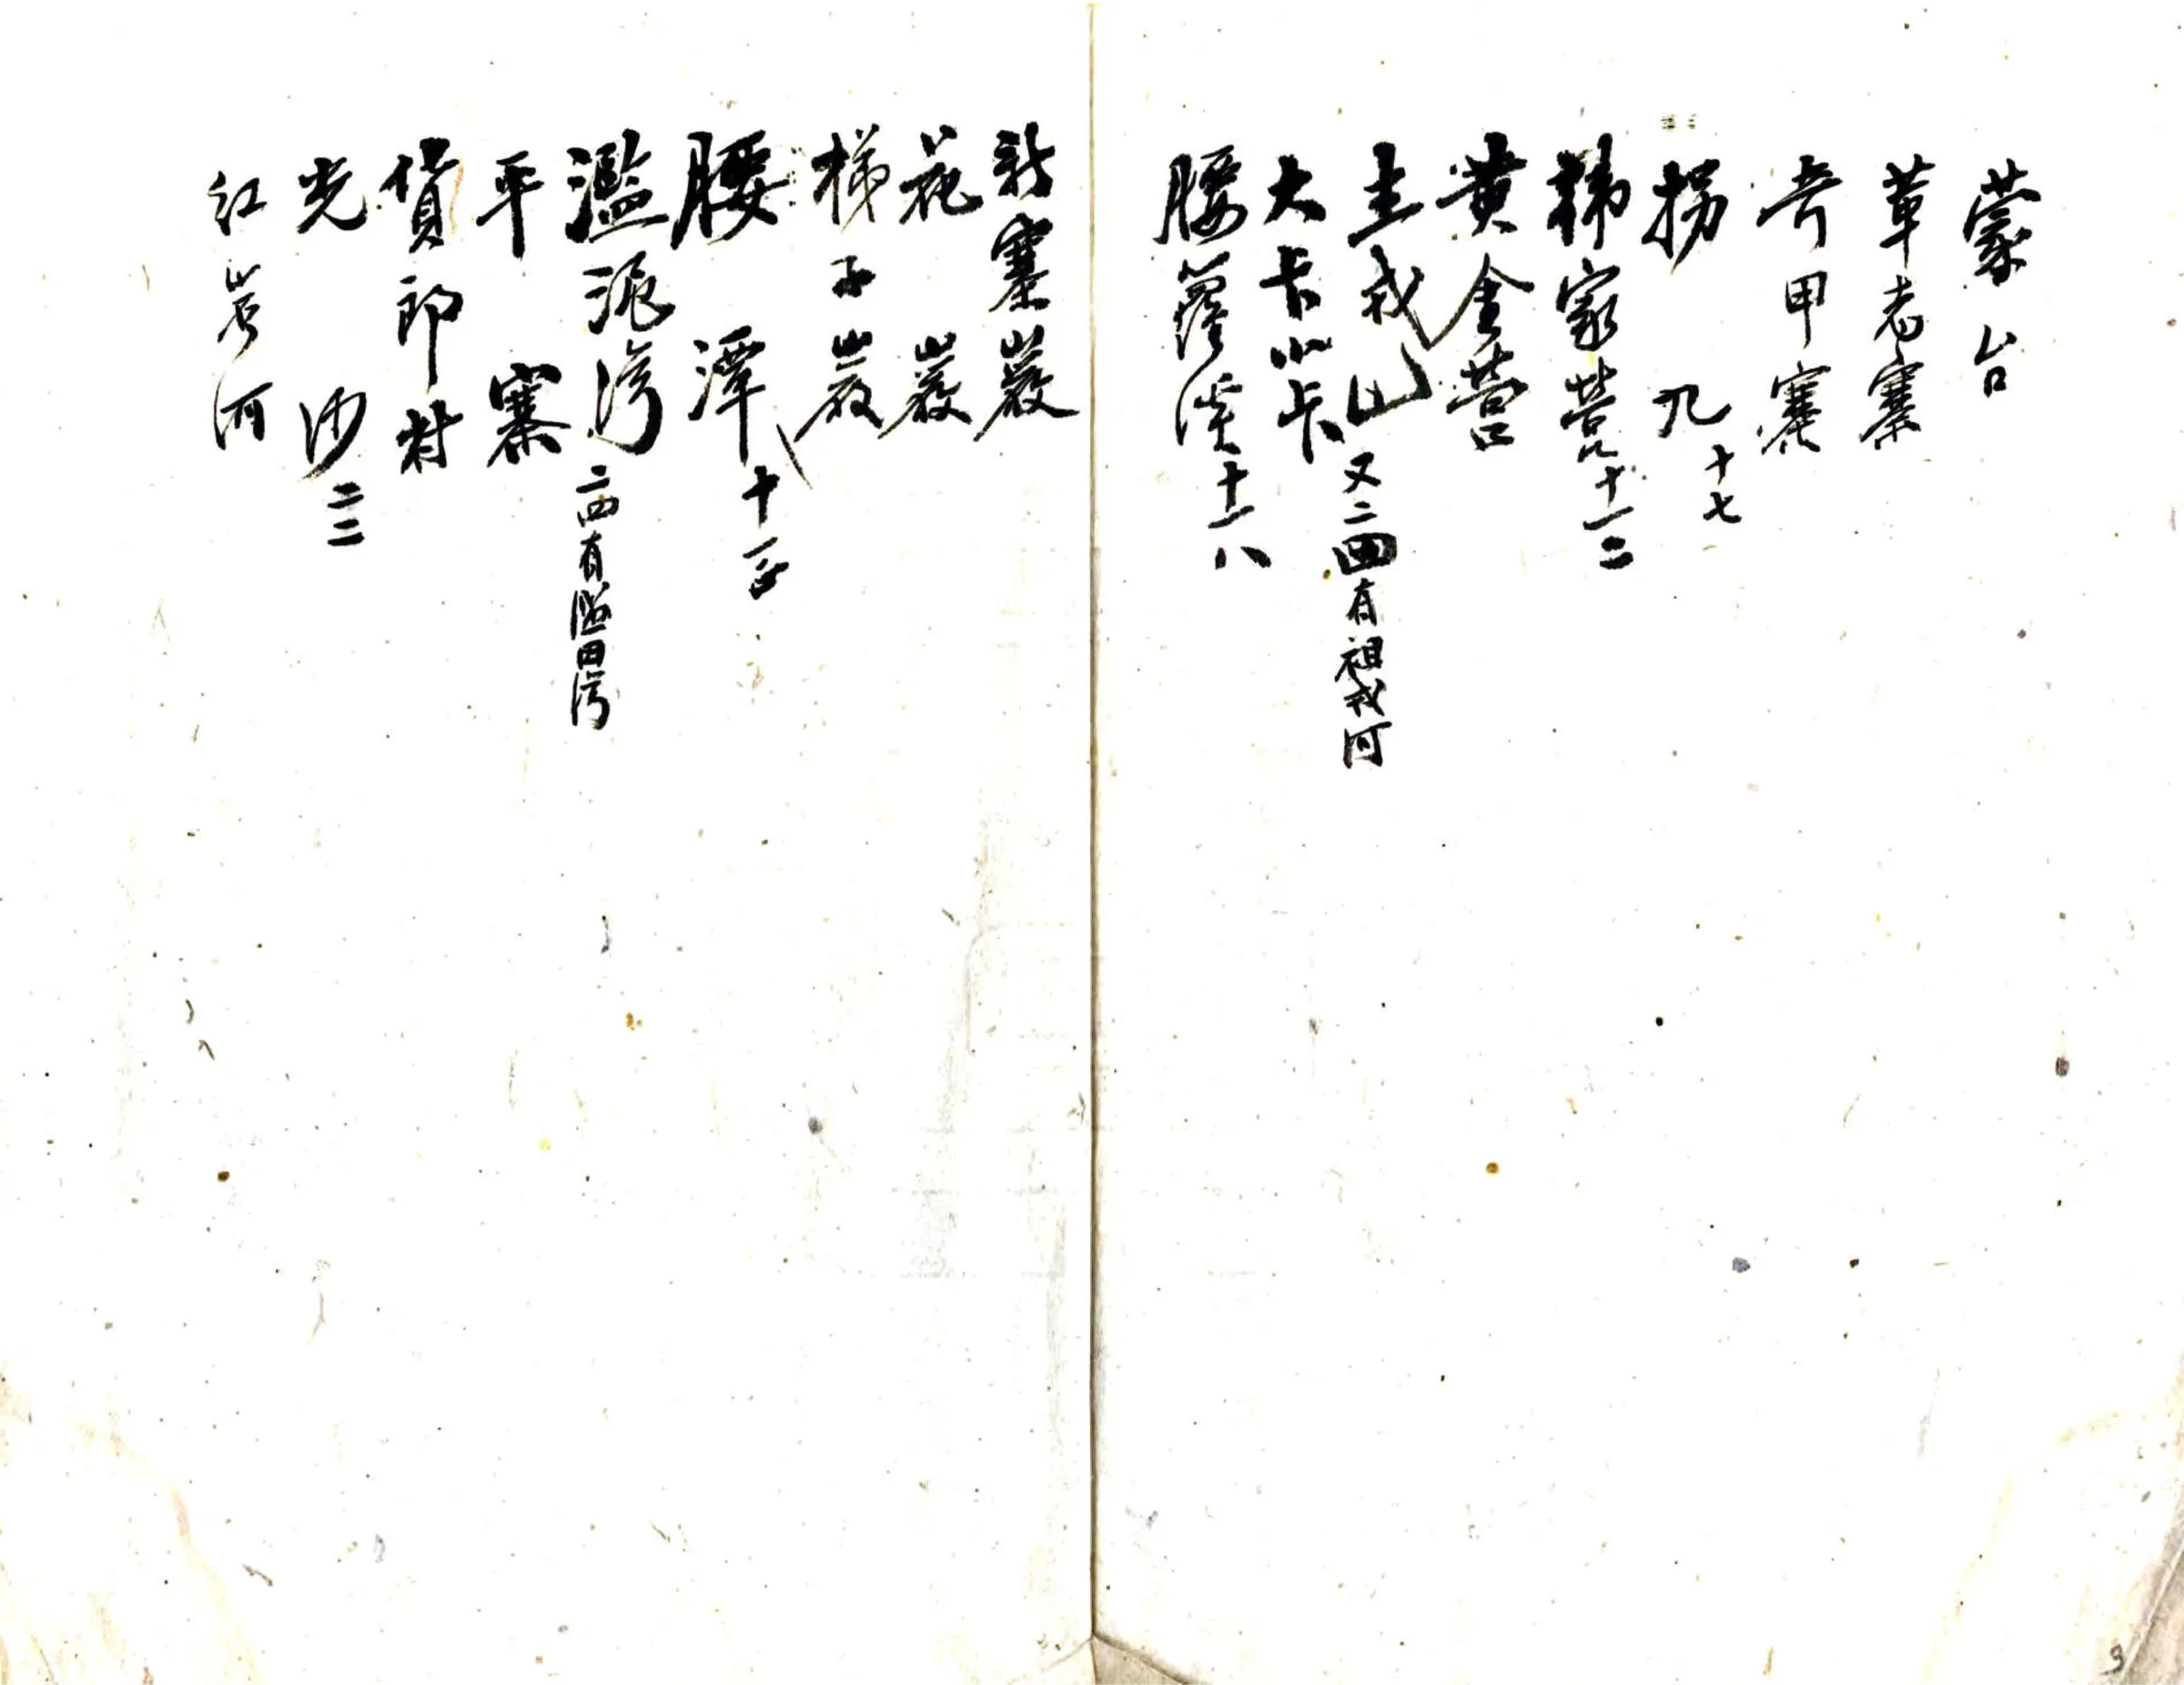 蒙台
草老寨
甲寨
拐九十七
家营十二
黄金营
主戎山又二四有祖戎河
大卡小卡
腰蘿溪十八
新寨巖
花巖
梯子巖
腰潭十
濫泥湾二四有濫田湾
平寨
貨郎村
光沙二二
红岩河
3